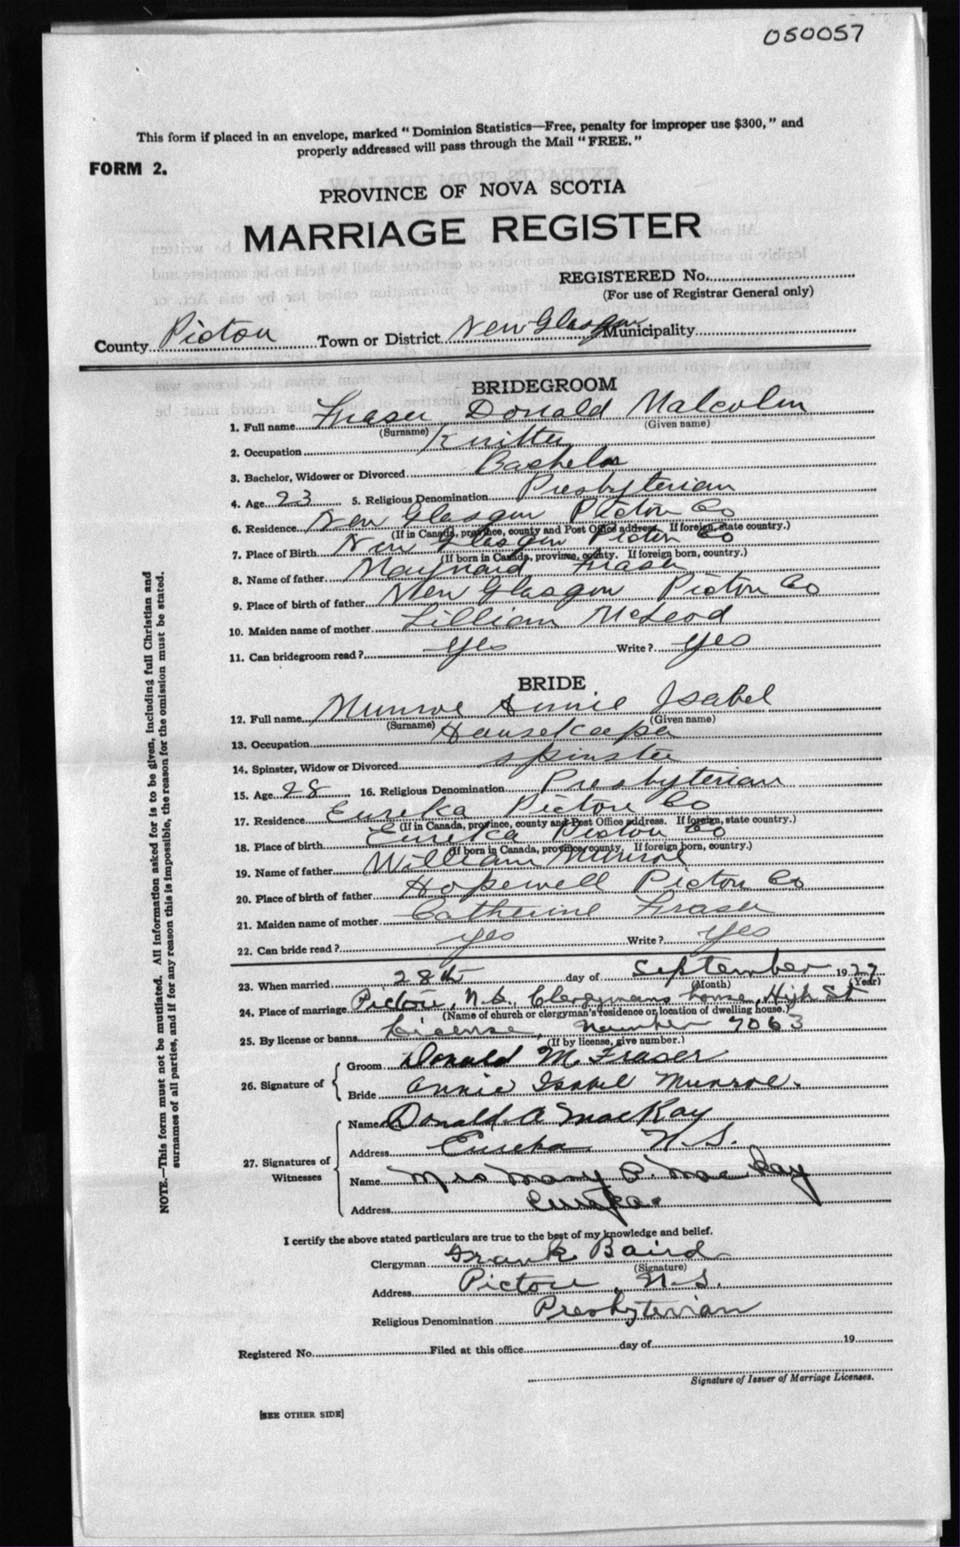 050057
This form if placed in an envelope, marked "Dominion Statistics—Free, penalty for improper use $300," and
properly addressed will pass through the Mail "FREE."
FORM 2.
PROVINCE OF NOVA SCOTIA
MARRIAGE REGISTER
REGISTERED No.
(For use of Registrar General only)
County Pictou Town or District New Glasgow Municipality
BRIDEGROOM
1. Full name Fraser Donald Malcolm
(Surname) (Given name)
2. Occupation Knitter
3. Bachelor, Widower or Divorced Bachelor
4. Age 23 5. Religious Denomination Presbyterian
6. Residence New Glasgow Pictou Co
(If in Canada, province, county and Post Office address. If foreign, state country.)
7. Place of Birth New Glasgow Pictou Co
(If born in Canada, province, county. If foreign born, country.)
8. Name of father Maynard Fraser
9. Place of birth of father New Glasgow Pictou Co
10. Maiden name of mother Lillian McLeod
11. Can bridegroom read? yes Write? yes
BRIDE
12. Full name Munroe Annie Isabel
(Surname) (Given name)
13. Occupation Housekeeper
14. Spinster, Widow or Divorced spinster
15. Age 28 16. Religious Denomination Presbyterian
17. Residence Eureka Pictou Co
(If in Canada, province, county and Post Office address. If foreign, state country.)
18. Place of birth Eureka Pictou Co
(If born in Canada, province, county. If foreign born, country.)
19. Name of father William Munroe
20. Place of birth of father Hopewell Pictou Co
21. Maiden name of mother Catherine Fraser
22. Can bride read? yes Write? yes
23. When married 28th day of September 1927
(Month) (Year)
24. Place of marriage Pictou, N.S., Clergymans house, High St
(Name of church or clergyman's residence or location of dwelling house.)
25. By license or banns License, number 7063
(If by license, give number.)
26. Signature of
Groom Donald M. Fraser
Bride Annie Isabel Munroe.
27. Signatures of Witnesses
Name Donald A MacKay
Address Eureka N.S.
Name Mrs Mary P. MacKay
Address Eureka.
I certify the above stated particulars are true to the best of my knowledge and belief.
Clergyman Frank Baird
(Signature)
Address Pictou, N.S.
Religious Denomination Presbyterian
Registered No. Filed at this office day of 19
Signature of Issuer of Marriage Licenses.
[SEE OTHER SIDE]
NOTE.—This form must not be mutilated. All information asked for is to be given, including full Christian and
surnames of all parties, and if for any reason this is impossible, the reason for the omission must be stated.